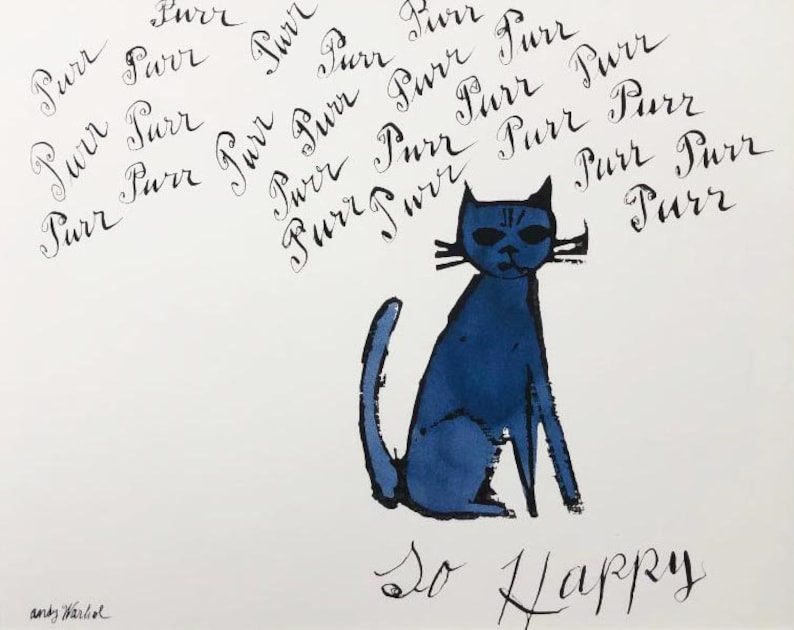 Purr Purr Purr
Purr Purr Purr Purr Purr Purr
Purr Purr Purr Purr Purr Purr Purr
Purr Purr Purr Purr Purr
Purr Purr Purr Purr
So Happy
Andy Warhol